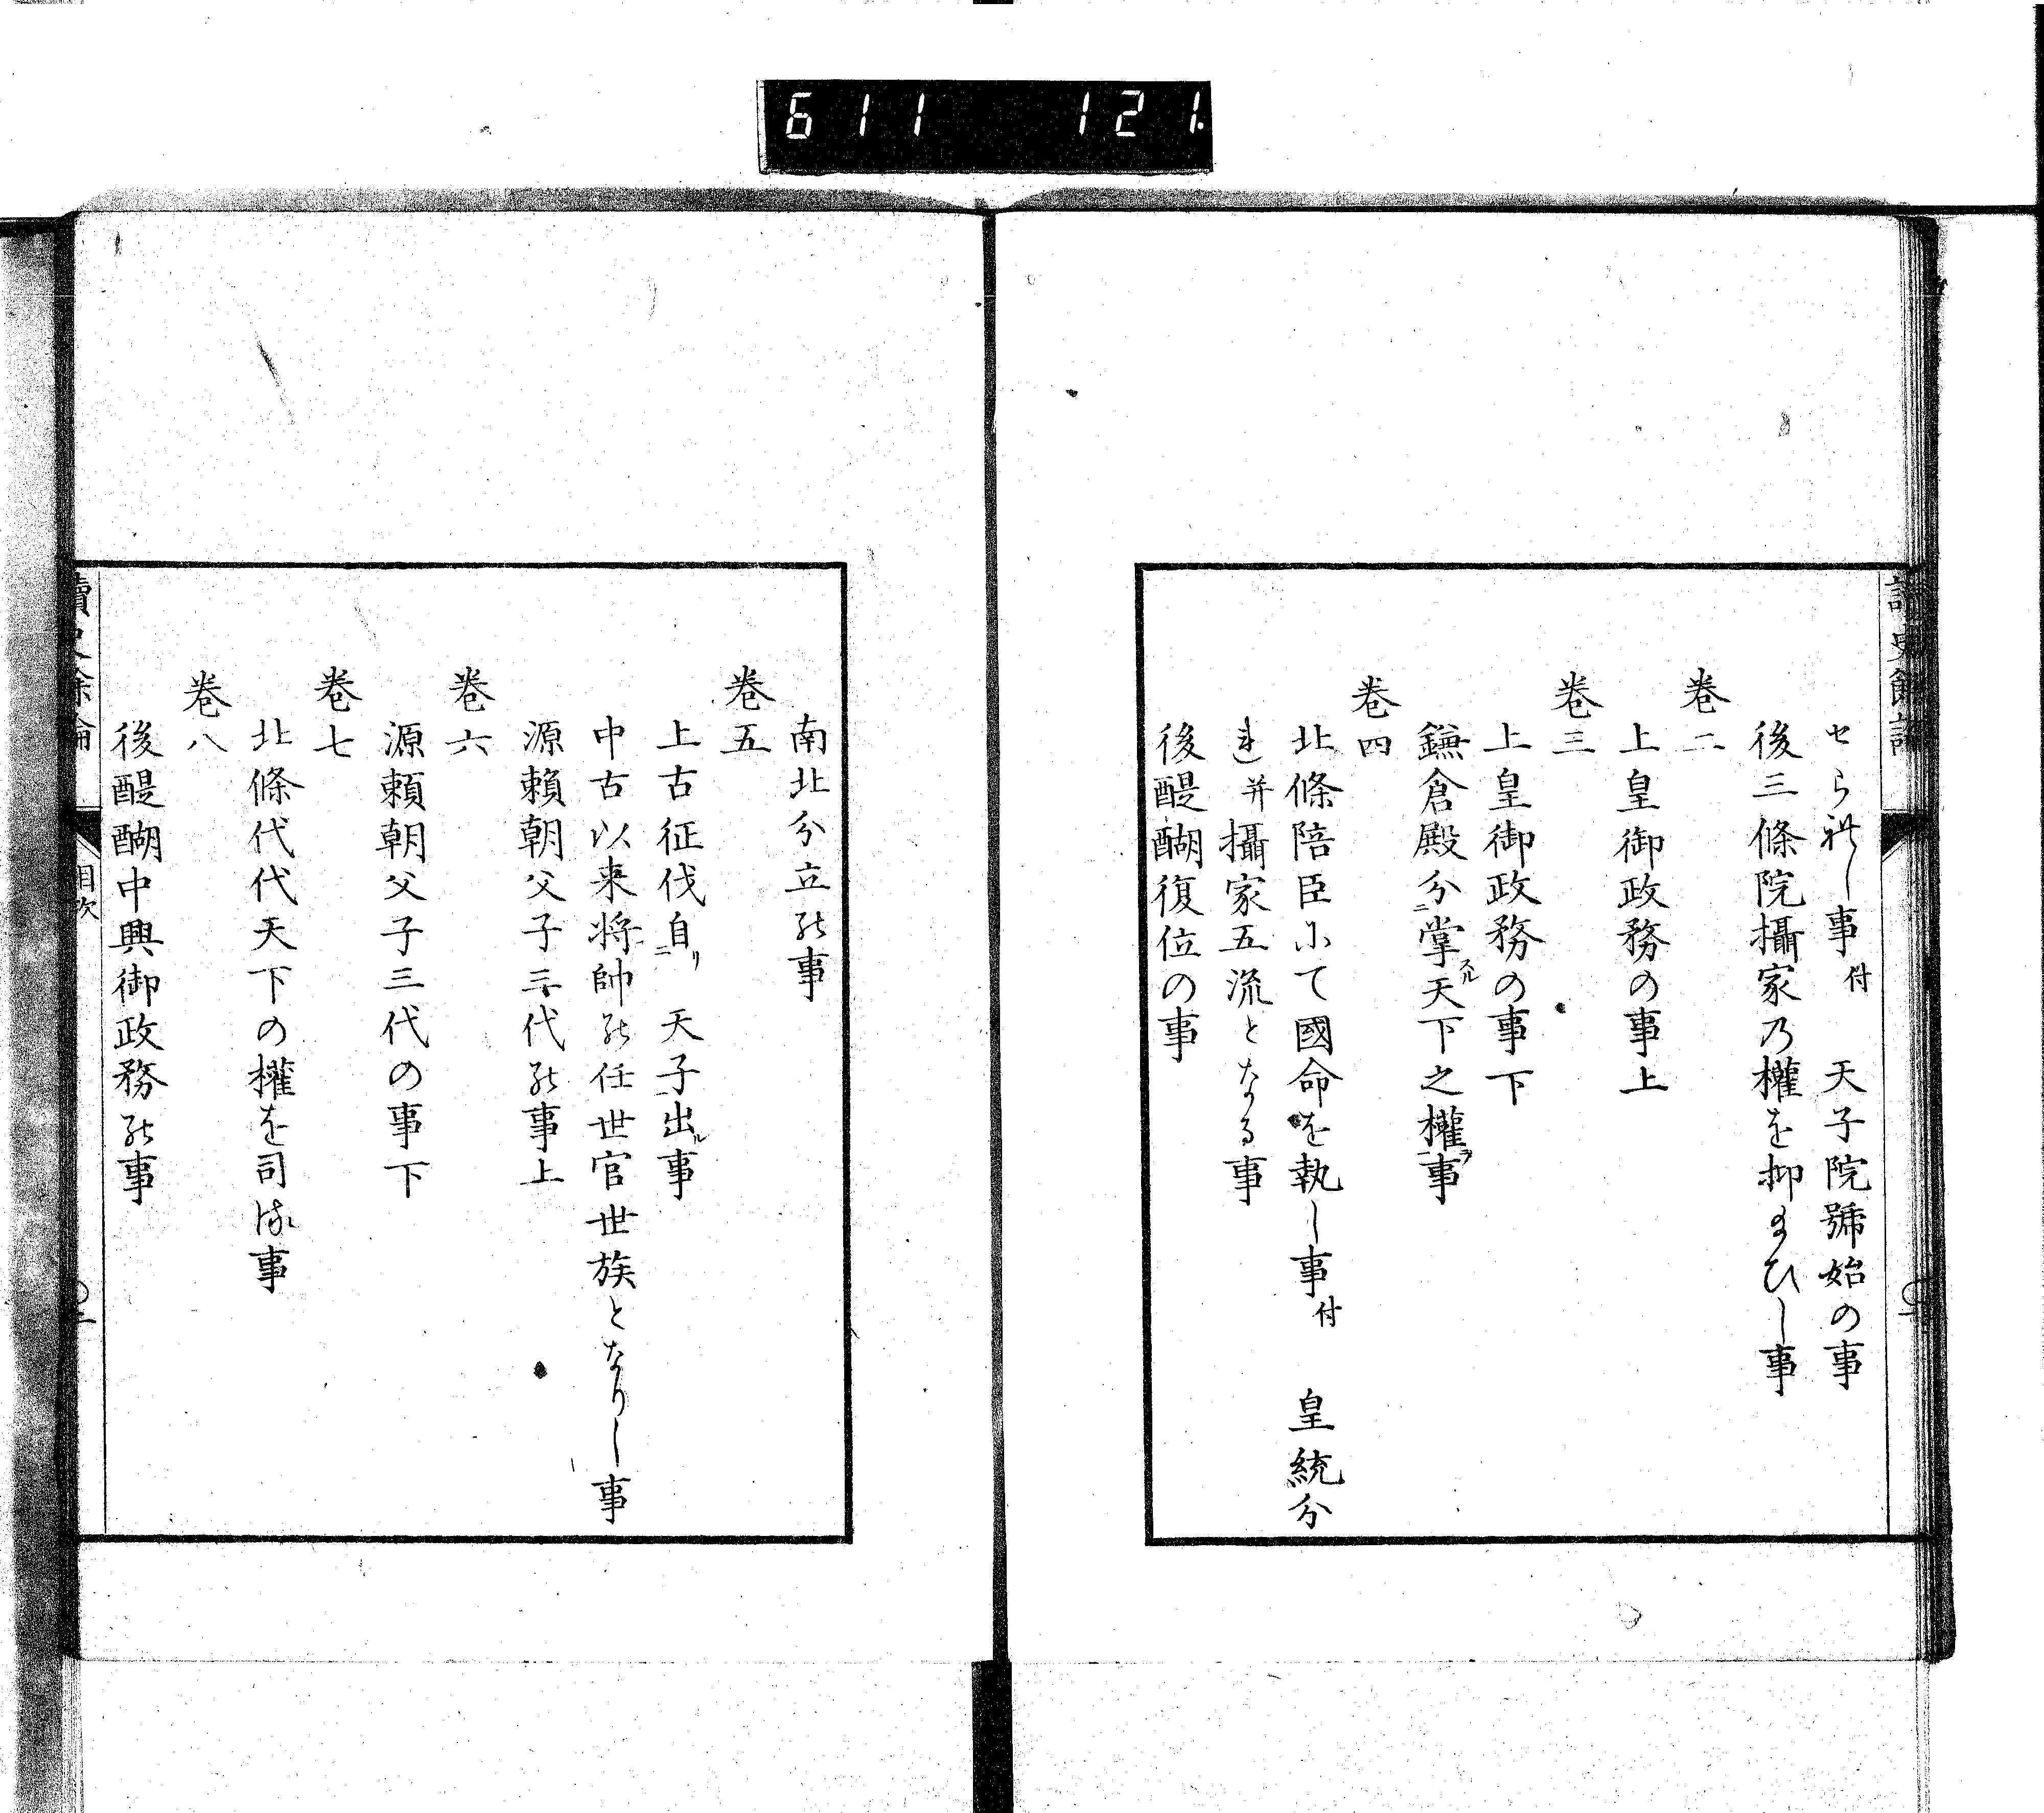 611 121.
讀史餘論
せられし事付 天子院號始の事
後三條院攝家乃權を抑まひし事
巻二
上皇御政務の事上
巻三
上皇御政務の事下
鎌倉殿分ニ掌スル天下之權ヲ事
巻四
北條陪臣にて國命を執し事付 皇統分
れ并攝家五流となる事
後醍醐復位の事
南北分立の事
巻五
上古征伐自リニ 天子出ル事
中古以来将帥の任世官世族となりし事
源頼朝父子三代の事上
巻六
源頼朝父子三代の事下
巻七
北條代代天下の權を司る事
巻八
後醍醐中興御政務の事
讀史余論
目次